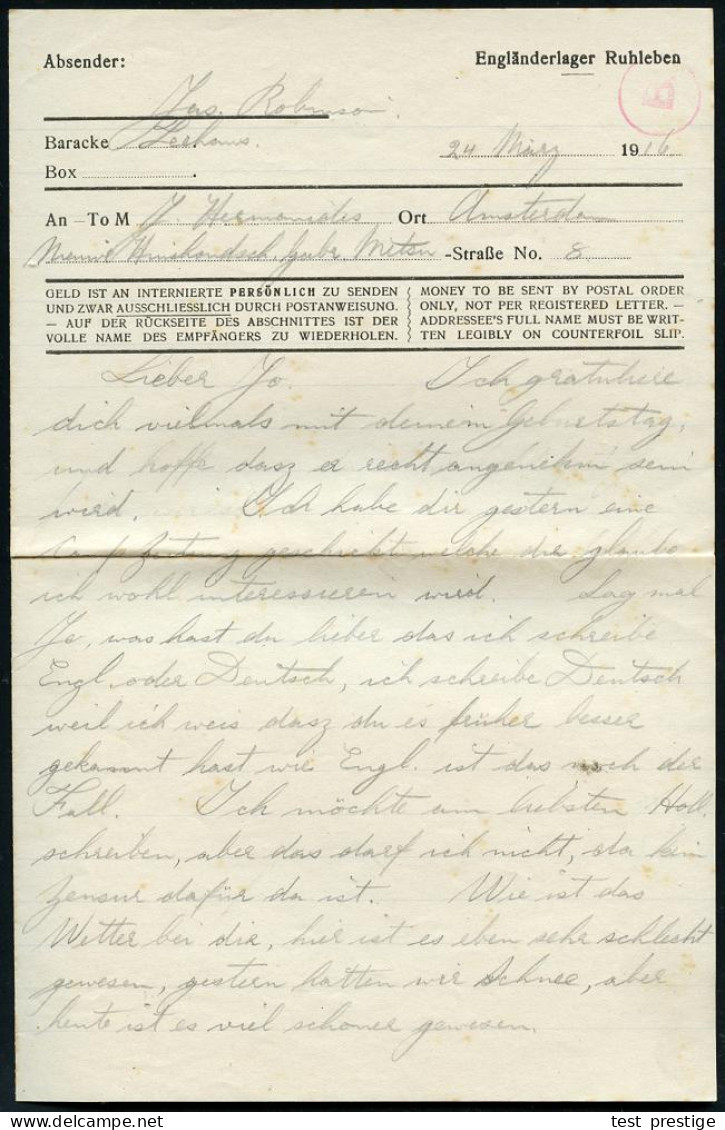 Absender:
Engländerlager Ruhleben
Jas. Robinson.
Baracke Teehaus.
24 März 1916
Box .
An - To M J. Hermanides Ort Amsterdam
-Straße No. 8
GELD IST AN INTERNIERTE PERSÖNLICH ZU SENDEN
UND ZWAR AUSSCHLIESSLICH DURCH POSTANWEISUNG.
— AUF DER RÜCKSEITE DES ABSCHNITTES IST DER
VOLLE NAME DES EMPFÄNGERS ZU WIEDERHOLEN.
MONEY TO BE SENT BY POSTAL ORDER
ONLY, NOT PER REGISTERED LETTER. —
ADDRESSEE'S FULL NAME MUST BE WRIT-
TEN LEGIBLY ON COUNTERFOIL SLIP.
Lieber Jo. Ich gratuliere
dich vielmals mit deinem Geburtstag,
und hoffe dasz er recht angenehm sein
wird. Ich habe dir gestern eine
geschickt welche dir glaube
ich wohl interessieren wird. Sag mal
Jo, was hast du lieber das ich schreibe
Engl. oder Deutsch, ich schreibe Deutsch
weil ich weis dasz du es früher besser
gekannt hast wie Engl. ist das noch der
Fall. Ich möchte am liebsten Holl.
schreiben, aber das darf ich nicht, da kein
Zensur dafür da ist. Wie ist das
Wetter bei dir, hier ist es eben sehr schlecht
gewesen, gestern hatten wir Schnee, aber
heute ist es viel schöner gewesen.
test prestige